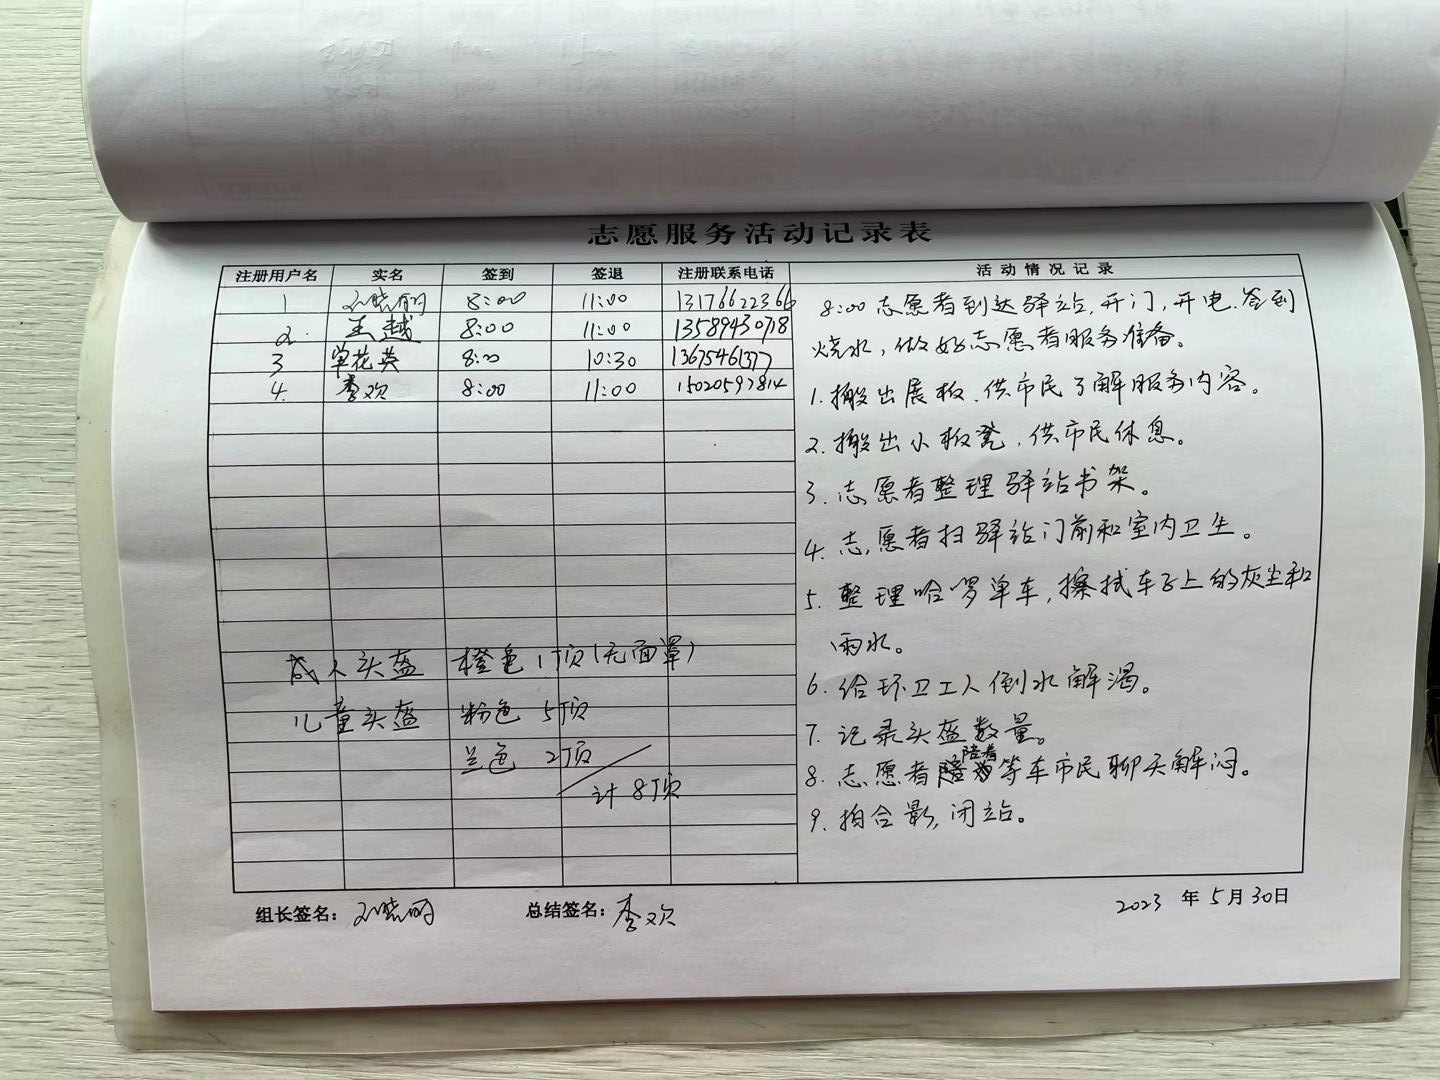 志愿服务活动记录表
注册用户名 实名 签到 签退 注册联系电话 活动情况记录
1 8:00 11:00 13176622366
2. 王越 8:00 11:00 13589430718
3 单花英 8:00 10:30 13675461377
4. 李欢 8:00 11:00 15020597814
8:00志愿者到达驿站,开门,开电.签到
烧水,做好志愿者服务准备。
1.搬出展板.供市民了解服务内容。
2.搬出小板凳.供市民休息。
3.志愿者整理驿站书架。
4.志愿者扫驿站门前和室内卫生。
5.整理哈啰单车,擦拭车子上的灰尘和
雨水。
6.给环卫工人倒水解渴。
7.记录头盔数量。
8.志愿者陪着等车市民聊天解闷。
9.拍合影,闭站。
成人头盔 橙色1顶(无面罩)
儿童头盔 粉色 5顶
兰色 2顶
计8顶
组长签名: 总结签名:李欢 2023年5月30日